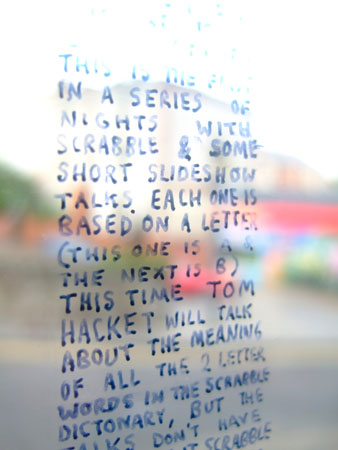 THIS IS THE FIRST
IN A SERIES OF
NIGHTS WITH
SCRABBLE & SOME
SHORT SLIDESHOW
TALKS. EACH ONE IS
BASED ON A LETTER
(THIS ONE IS A &
THE NEXT IS B)
THIS TIME TOM
HACKET WILL TALK
ABOUT THE MEANING
OF ALL THE 2 LETTER
WORDS IN THE SCRABBLE
DICTONARY, BUT THE
TALKS DON'T HAVE
SCRABBLE